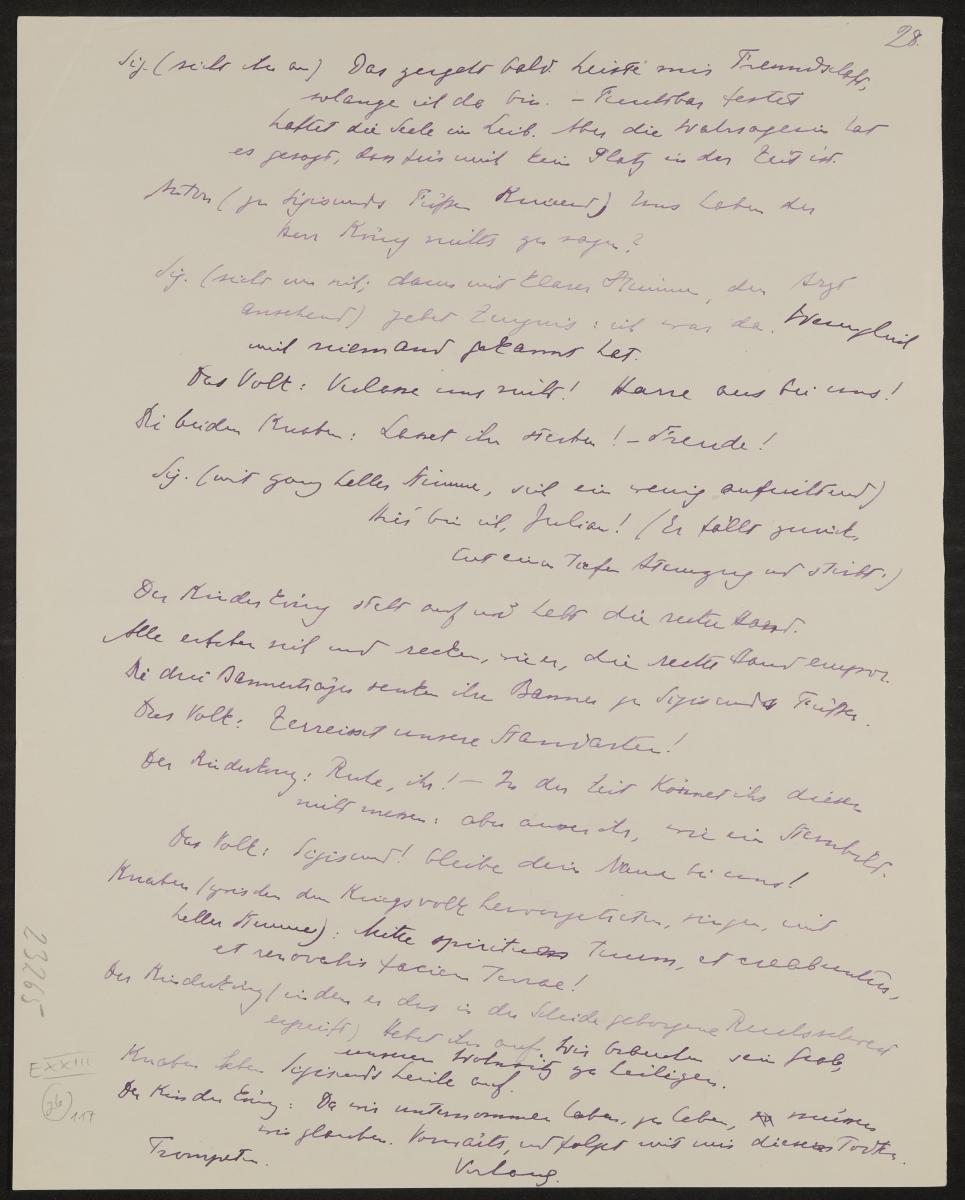 28.
Sig. (sieht ihn an) Das zergeht bald. Leiste mir Freundschaft,
solange ich da bin. – Furchtbar fest
haftet die Seele im Leib. Aber die Wahrsagerin hat
es gesagt, dass für mich kein Platz in der Zeit ist.
Anton (zu Sigismunds Füßen Knieend) Uns haben der
Herr König nichts zu sagen?
Sig. (sieht um sich; dann mit klarer Stimme, den Arzt
ansehend) gebet Zeugnis: ich war da. Wenngleich
mich niemand gekannt hat.
Das Volk: Verlasse uns nicht! Harre aus bei uns!
Die beiden Knaben: Lasset ihn sterben! – Freude!
Sig. (mit ganz heller Stimme, sich ein wenig aufrichtend)
Hier bin ich, Julian! (Er fällt zurück,
tut einen tiefen Atemzug und stirbt.)
Der Kinderkönig steht auf und hebt die rechte Hand.
Alle erheben sich und recken, wie er, die rechte Hand empor.
Die drei Bannerträger senken ihre Banner zu Sigismunds Füßen.
Das Volk: Zerreisset unsere Standarten!
Der Kinderkönig: Ruhe, ihr! – In der Zeit Könnet ihr diesen
nicht messen: aber ausser ihr, wie ein Sternbild.
Das Volk: Sigismund! bleibe dein Name bei uns!
Knaben (zwischen dem Kriegsvolk hervorgetreten, singen, mit
heller Stimme): Mitte spiritum Tuum, et creabuntur,
et renovabis faciem Terrae!
Der Kinderkönig (indem er das in der Scheide geborgene Reichsschwert
ergreift) Hebet ihn auf. Wir brauchen sein Grab,
unseren Wohnsitz zu heiligen.
Knaben heben Sigismunds Leiche auf.
Der Kinderkönig: Da wir unternommen haben, zu leben, müssen
wir glauben. Vorwärts, und folget mit mir diesem Toten.
Trompeten.
Vorhang.
23265
E XXIII
26
117